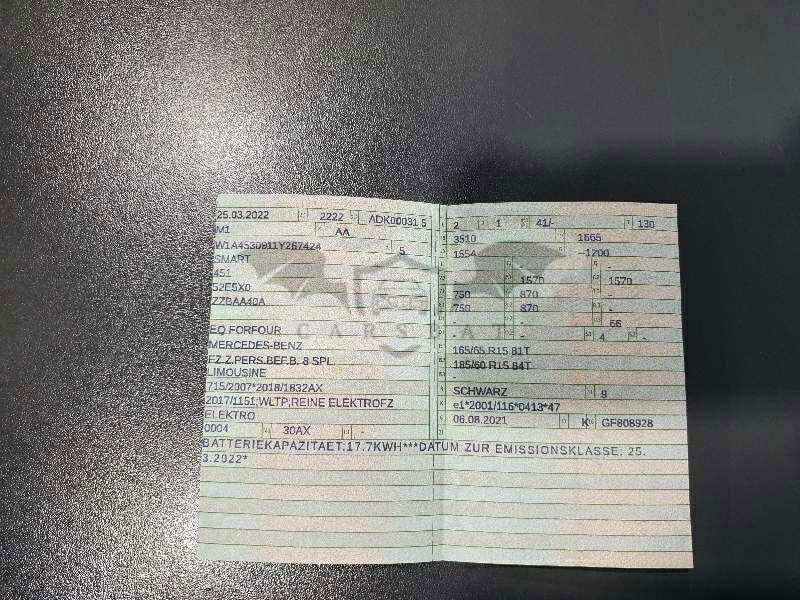 25.03.2022 2222 ADK00031 5
M1 AA
W1A4530911Y267424 5
SMART
451
52E5X0
ZZBAA40A
EQ FORFOUR
MERCEDES-BENZ
FZ.Z.PERS.BEF.B. 8 SPL
LIMOUSINE
715/2007*2018/1832AX
2017/1151;WLTP;REINE ELEKTROFZ
ELEKTRO
0004 30AX -
2 1 41/- 130
3510 1665
1554 -1200
- -
- 1570 1570
750 870 -
750 870 -
- - 66
- - 4 -
165/65 R15 81T
185/60 R15 84T
SCHWARZ 9
e1*2001/116*0413*47
06.08.2021 K GF808928
BATTERIEKAPAZITAET:17.7KWH***DATUM ZUR EMISSIONSKLASSE: 25.
3.2022*
CARSTAT